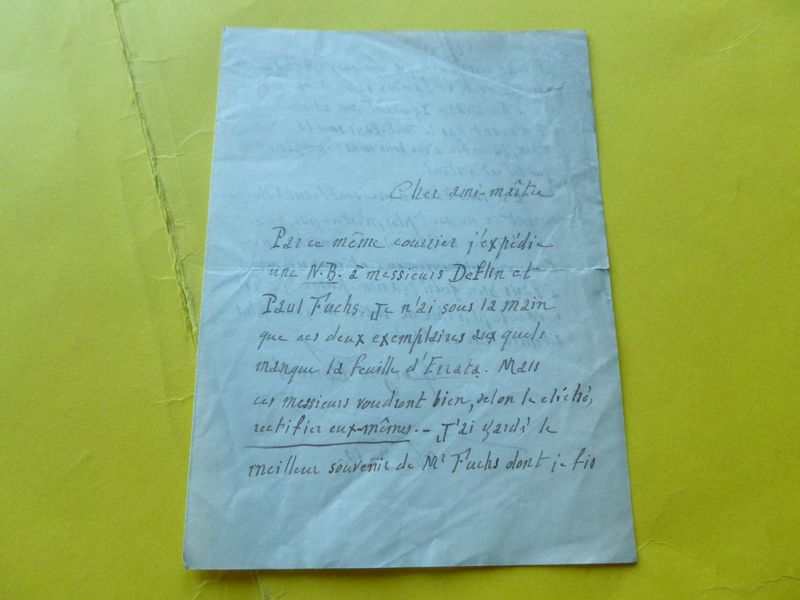 Cher ami-maître
Par ce même courrier j'expédie
une N.B. à messieurs Deflin et
Paul Fuchs. Je n'ai sous la main
que ces deux exemplaires aux quels
manque la feuille d'Errata. Mais
ces messieurs voudront bien, selon le cliché,
rectifier eux-mêmes. – J'ai gardé le
meilleur souvenir de Mr Fuchs dont je fis